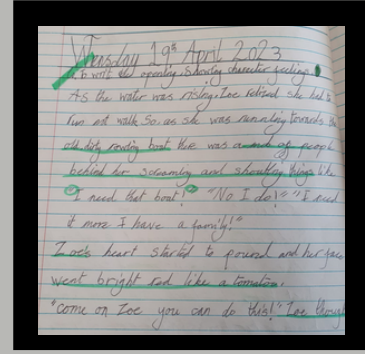 Wensday 19th April 2023
to writ the opening. Showing character feelings
As the water was rising. Zoe relized she had to
run not walk So, as she was running towards the
old dirty rowing boat the was a mob of peopl
behind her screaming and shouting things like
"I need that boat!" "No I do!" "I need
it more I have a family!"
Zoe's heart started to pound and her face
went bright red like a tomatow.
"come on Zoe you can do this!" Zoe though